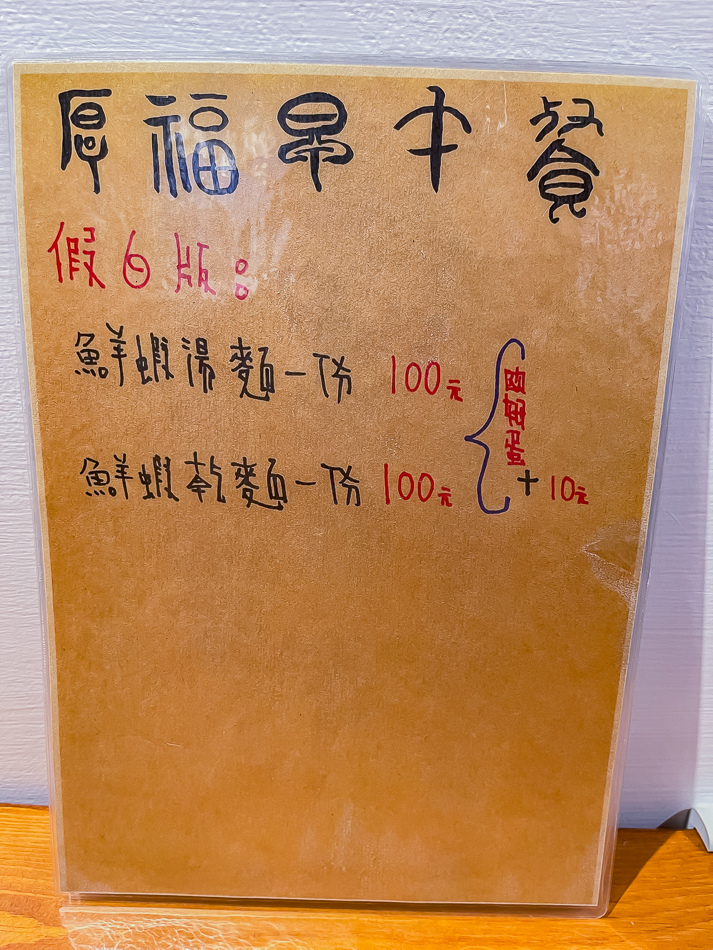 厚福早午餐
假日版：
鮮蝦湯麵一份 100元
鮮蝦乾麵一份 100元
歐姆蛋
+10元